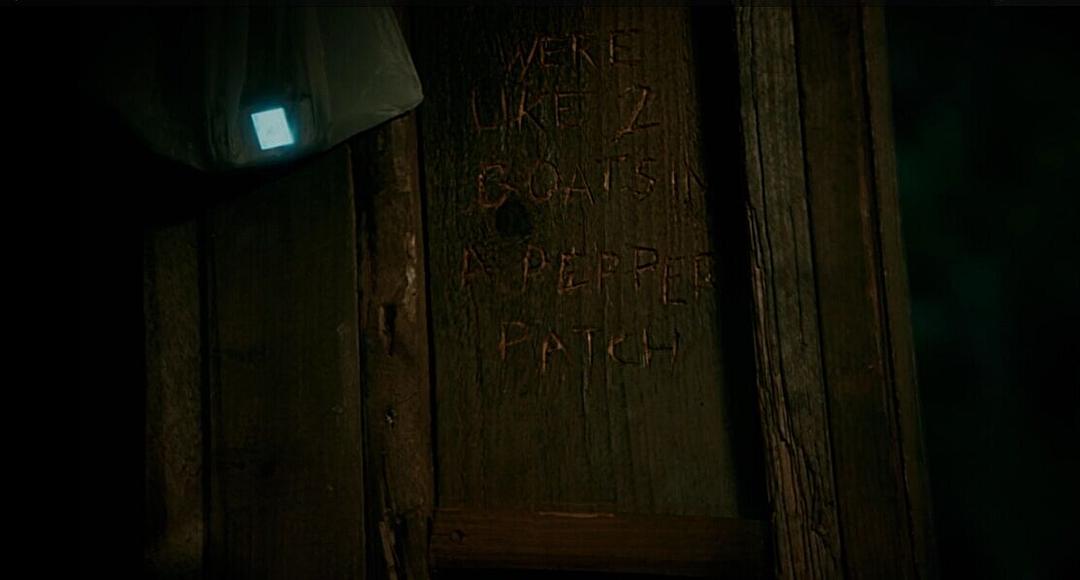 WERE
LIKE 2
BOATS IN
A PEPPER
PATCH